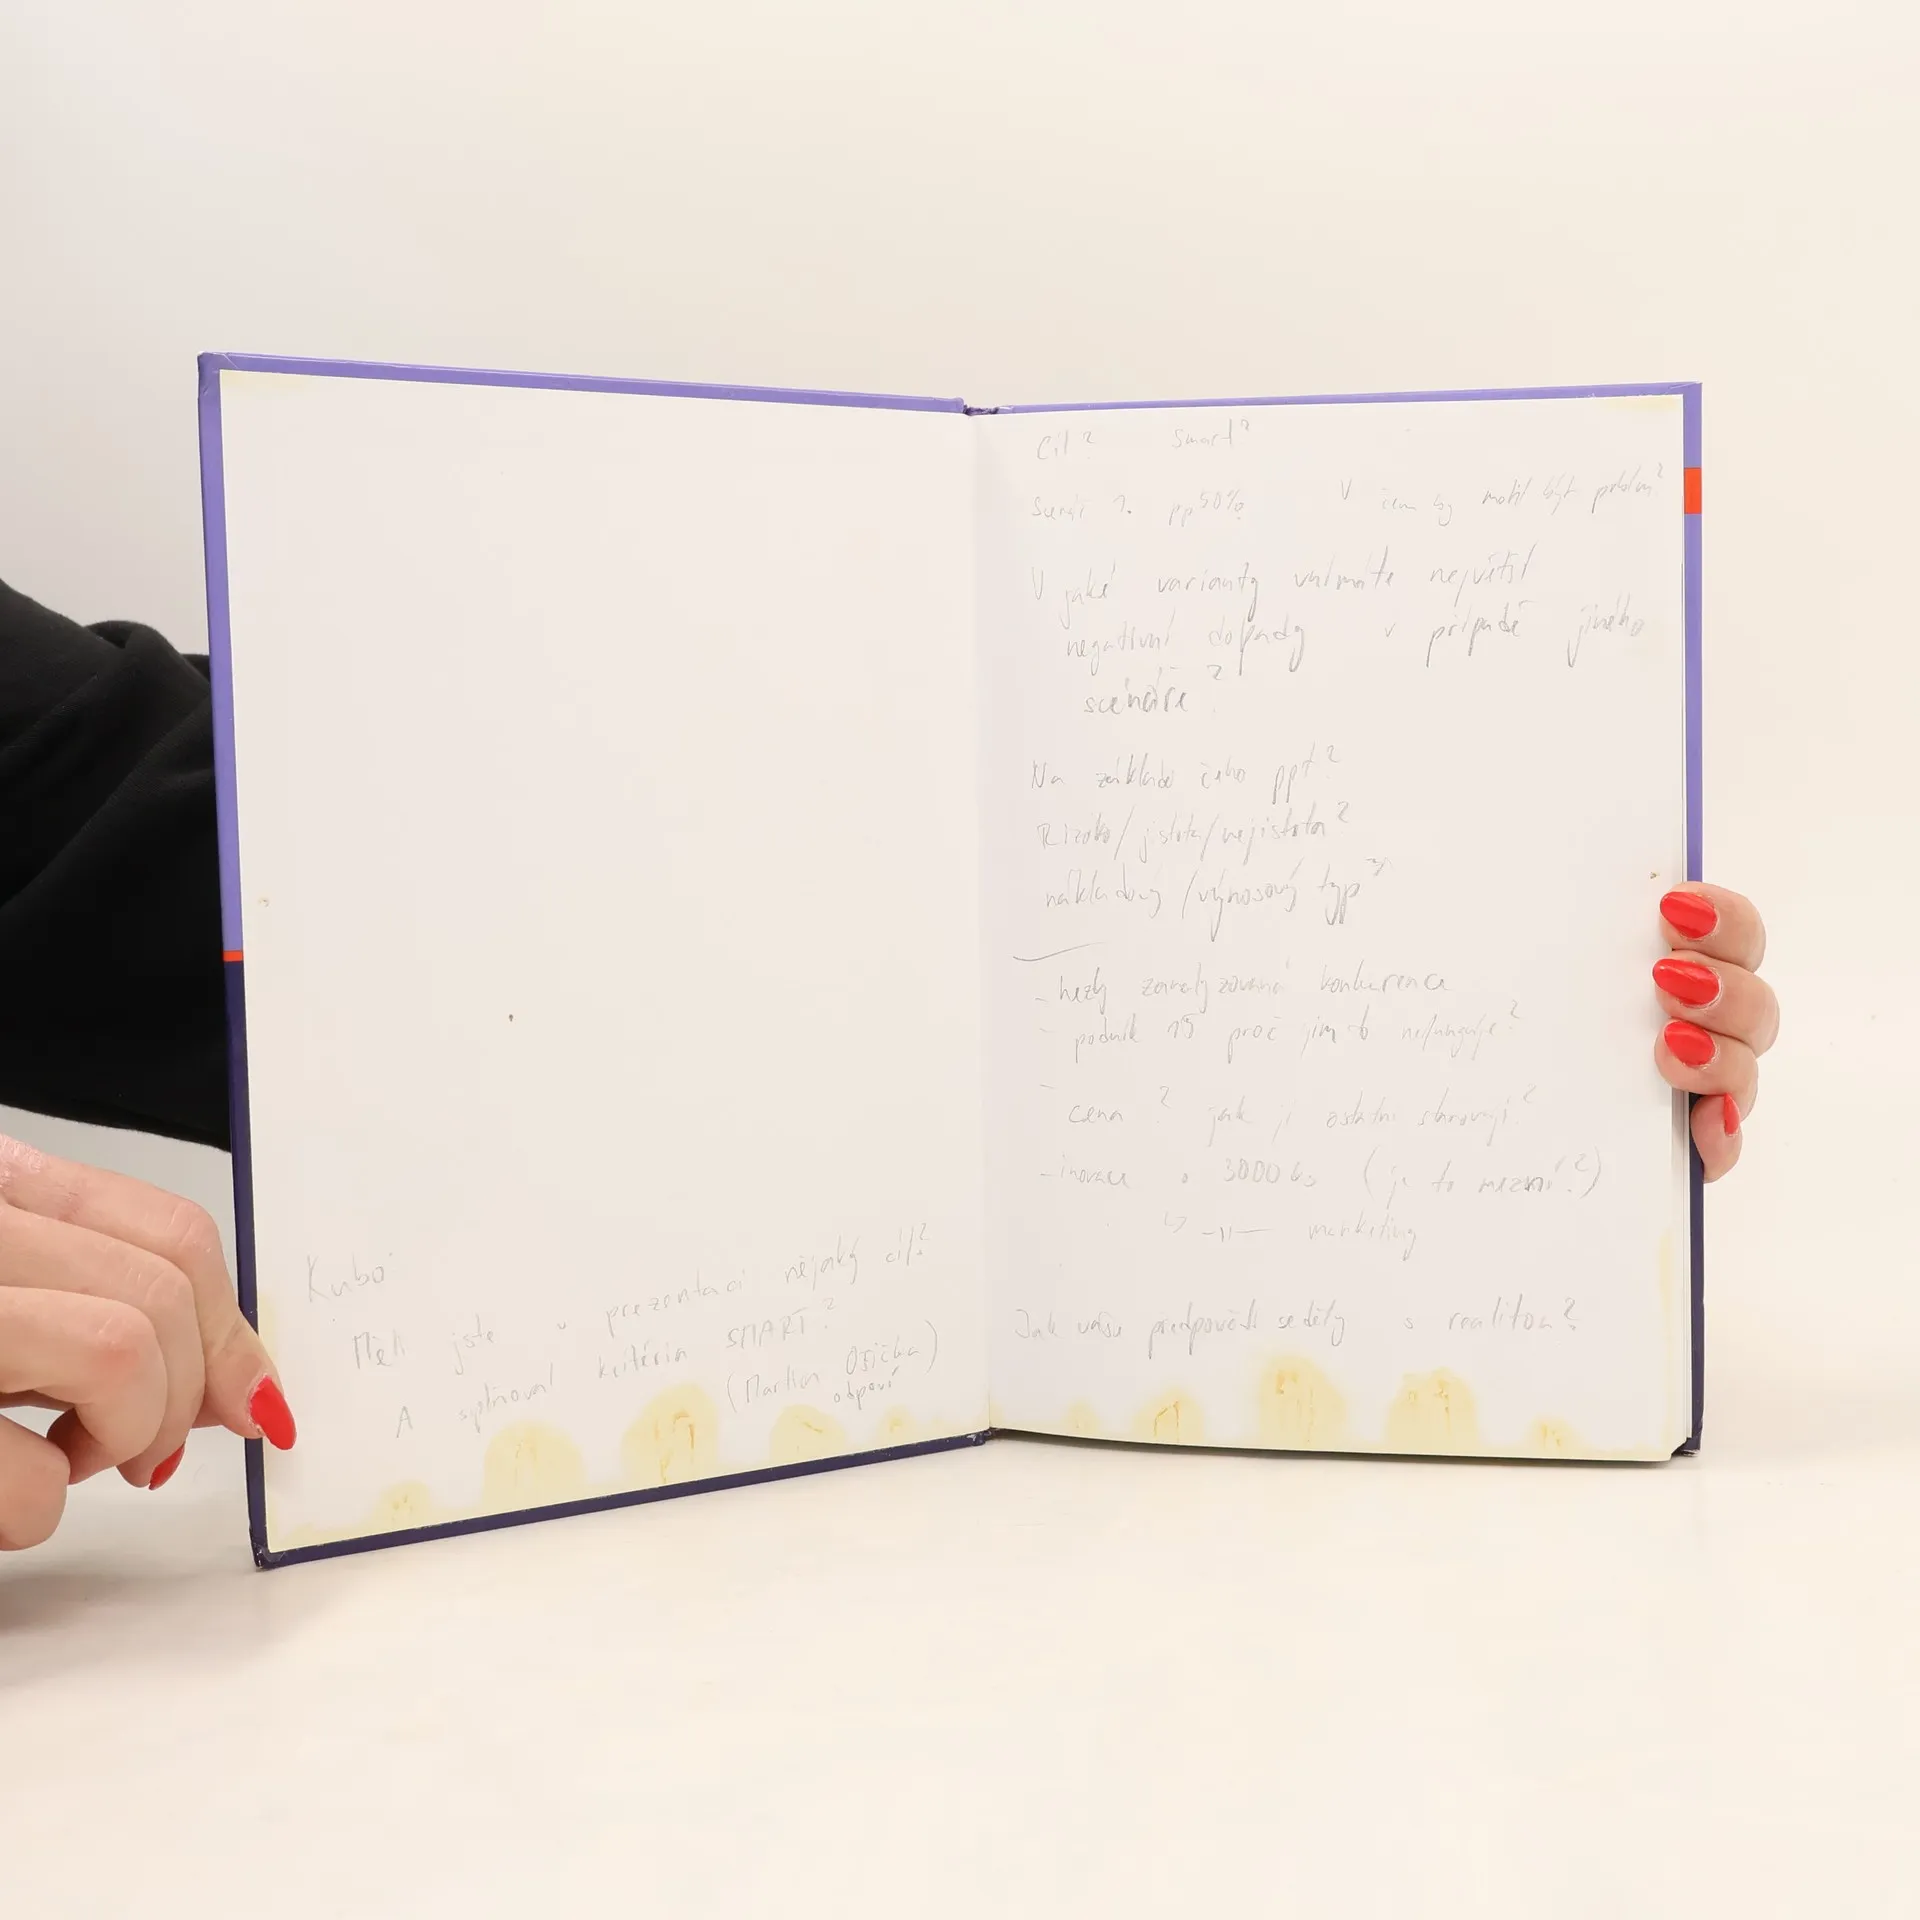 Kubo
Měli jste v prezentaci nějaký cíl?
A splňoval kritéria SMART?
(Martin Osička
odpoví)
Cíl? Smart?
Scénář 1. pp 50%? V čem by mohl být problém?
V jaké varianty vnímáte největší
negativní dopady v případě jiného
scénáře?
Na základě čeho ppt?
Riziko/jistota/nejistota?
nákladový/výnosový typ?
- hezky zanalyzovaná konkurence
- podnik 15 proč jim to nefunguje?
- cena? jak ji ostatní stanovují?
- inovace o 3000 ks (je to mezní?)
↳ -11- marketing
Jak vaše předpovědi seděly s realitou?